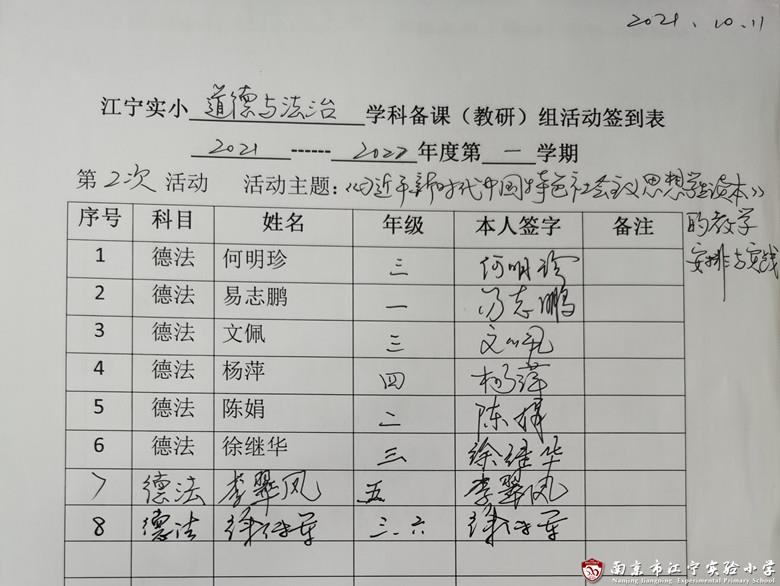 2021.10.11
江宁实小 道德与法治 学科备课（教研）组活动签到表
2021 ------ 2022 年度第 一 学期
第 2次 活动 活动主题：《习近平新时代中国特色社会主义思想学生读本》
的教学
安排与实践
序号 科目 姓名 年级 本人签字 备注
1 德法 何明珍 三 何明珍
2 德法 易志鹏 一 易志鹏
3 德法 文佩 三 文佩
4 德法 杨萍 四 杨萍
5 德法 陈娟 二 陈娟
6 德法 徐继华 三 徐继华
7 德法 李翠凤 五 李翠凤
8 德法 三、六
南京市江宁实验小学
Nanjing Jiangning Experimental Primary School